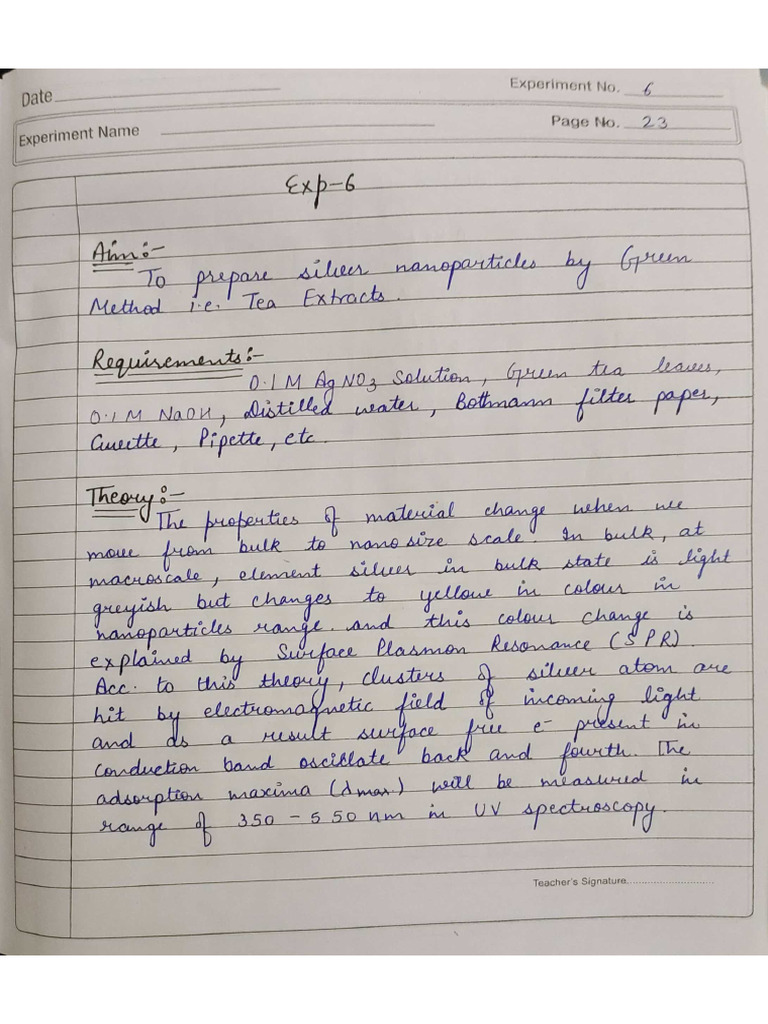 Date
Experiment No. 6
Experiment Name
Page No. 23
Exp-6
Aim:-
To prepare silver nanoparticles by Green
Method i.e. Tea Extracts.
Requirements:-
0.1 M AgNO3 Solution, Green tea leaves,
0.1 M NaOH, Distilled water, Bothmann filter paper,
Cuvette, Pipette, etc.
Theory:-
The properties of material change when we
move from bulk to nano size scale. In bulk, at
macroscale, element silver in bulk state is light
greyish but changes to yellow in colour in
nanoparticles range. and this colour change is
explained by Surface Plasmon Resonance (SPR).
Acc. to this theory, clusters of silver atom are
hit by electromagnetic field of incoming light
and as a result surface free e- present in
conduction band oscillate back and fourth. The
adsorption maxima (λmax) will be measured in
range of 350 - 550 nm in UV spectroscopy.
Teacher's Signature